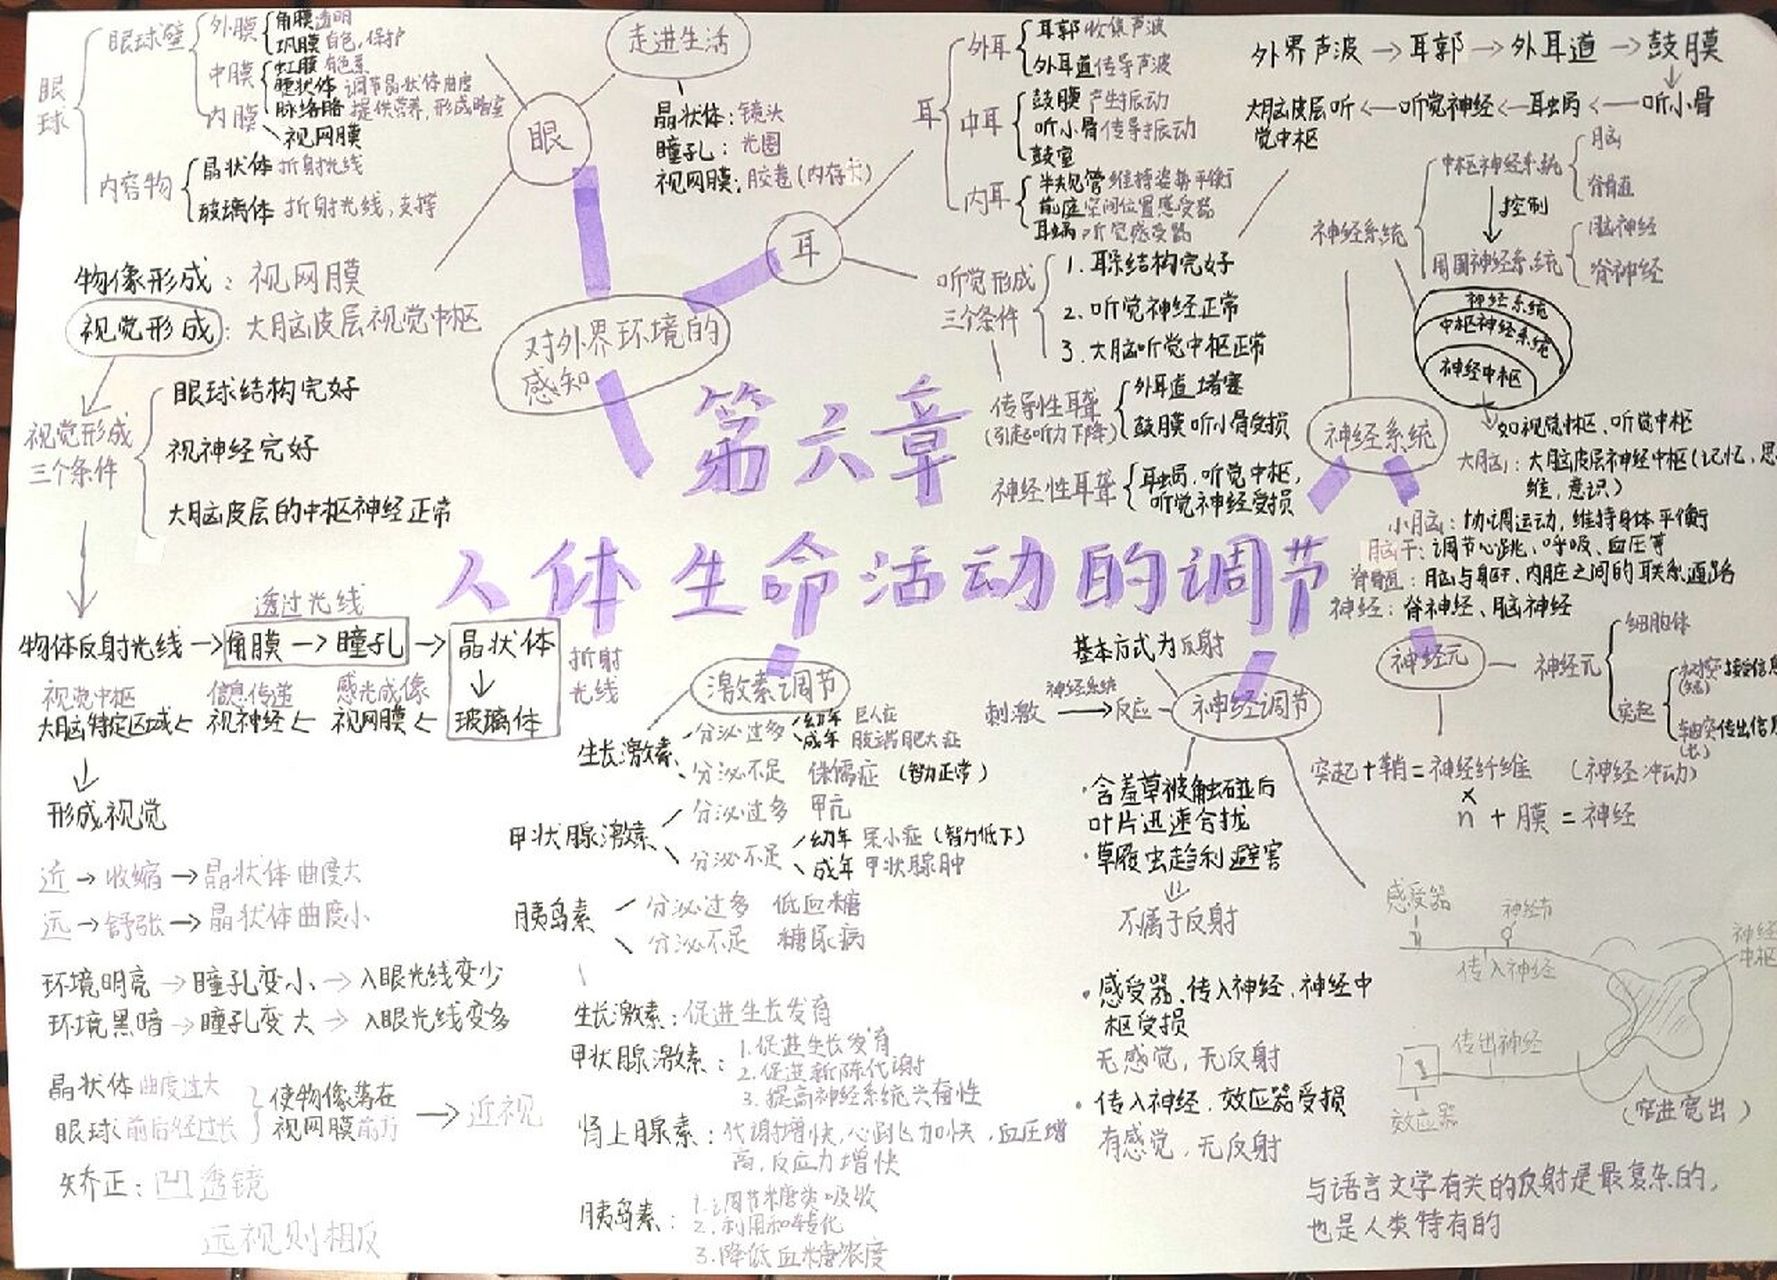 第六章
人体生命活动的调节
对外界环境的
感知
眼
走进生活
晶状体：镜头
瞳孔：光圈
视网膜：胶卷（内存卡）
眼球
眼球壁
外膜
角膜 透明
巩膜 白色，保护
中膜
虹膜 有色素
睫状体 调节晶状体曲度
脉络膜 提供营养，形成暗室
内膜
视网膜
内容物
晶状体 折射光线
玻璃体 折射光线，支撑
物像形成：视网膜
视觉形成：大脑皮层视觉中枢
视觉形成
三个条件
眼球结构完好
视神经完好
大脑皮层的中枢神经正常
透过光线
物体反射光线→角膜→瞳孔→晶状体
折射
光线
视觉中枢 信息传递 感光成像
大脑特定区域← 视神经← 视网膜← 玻璃体
形成视觉
近→收缩→晶状体曲度大
远→舒张→晶状体曲度小
环境明亮→瞳孔变小→入眼光线变少
环境黑暗→瞳孔变大→入眼光线变多
晶状体曲度过大
眼球前后径过长
使物像落在
视网膜前方
→近视
矫正：凹透镜
远视则相反
耳
耳
外耳
耳郭 收集声波
外耳道 传导声波
中耳
鼓膜 产生振动
听小骨 传导振动
鼓室
内耳
半规管 维持姿势平衡
前庭 空间位置感受器
耳蜗 听觉感受器
外界声波→耳郭→外耳道→鼓膜
大脑皮层听←听觉神经←耳蜗←听小骨
觉中枢
听觉形成
三个条件
1.耳朵结构完好
2.听觉神经正常
3.大脑听觉中枢正常
传导性耳聋
（引起听力下降）
外耳道 堵塞
鼓膜 听小骨受损
神经性耳聋
耳蜗，听觉中枢，
听觉神经受损
神经系统
神经系统
中枢神经系统
脑
脊髓
控制
周围神经系统
脑神经
脊神经
神经系统
中枢神经系统
神经中枢
如视觉中枢、听觉中枢
大脑：大脑皮层神经中枢（记忆，思
维，意识）
小脑：协调运动，维持身体平衡
脑干：调节心跳、呼吸、血压等
脊髓：脑与躯干、内脏之间的联系通路
神经：脊神经、脑神经
神经元
神经元
细胞体
突起
树突 接受信息
轴突 传出信息
（长）
突起+鞘=神经纤维 （神经冲动）
×
n +膜=神经
激素调节
生长激素
分泌过多
幼年 巨人症
成年 肢端肥大症
分泌不足 侏儒症（智力正常）
甲状腺激素
分泌过多 甲亢
分泌不足
幼年 呆小症（智力低下）
成年 甲状腺肿
胰岛素
分泌过多 低血糖
分泌不足 糖尿病
生长激素：促进生长发育
甲状腺激素：
1.促进生长发育
2.促进新陈代谢
3.提高神经系统兴奋性
肾上腺素：代谢增快，心跳加快，血压增
高，反应力增快
胰岛素：
1.调节糖类吸收
2.利用和转化
3.降低血糖浓度
基本方式为反射
神经系统
刺激→反应
神经调节
·含羞草被触碰后
叶片迅速合拢
·草履虫趋利避害
不属于反射
·感受器、传入神经、神经中
枢受损
无感觉，无反射
·传入神经、效应器受损
有感觉，无反射
感受器
神经节
传入神经
神经
中枢
传出神经
效应器
（窄进宽出）
与语言文字有关的反射是最复杂的，
也是人类特有的